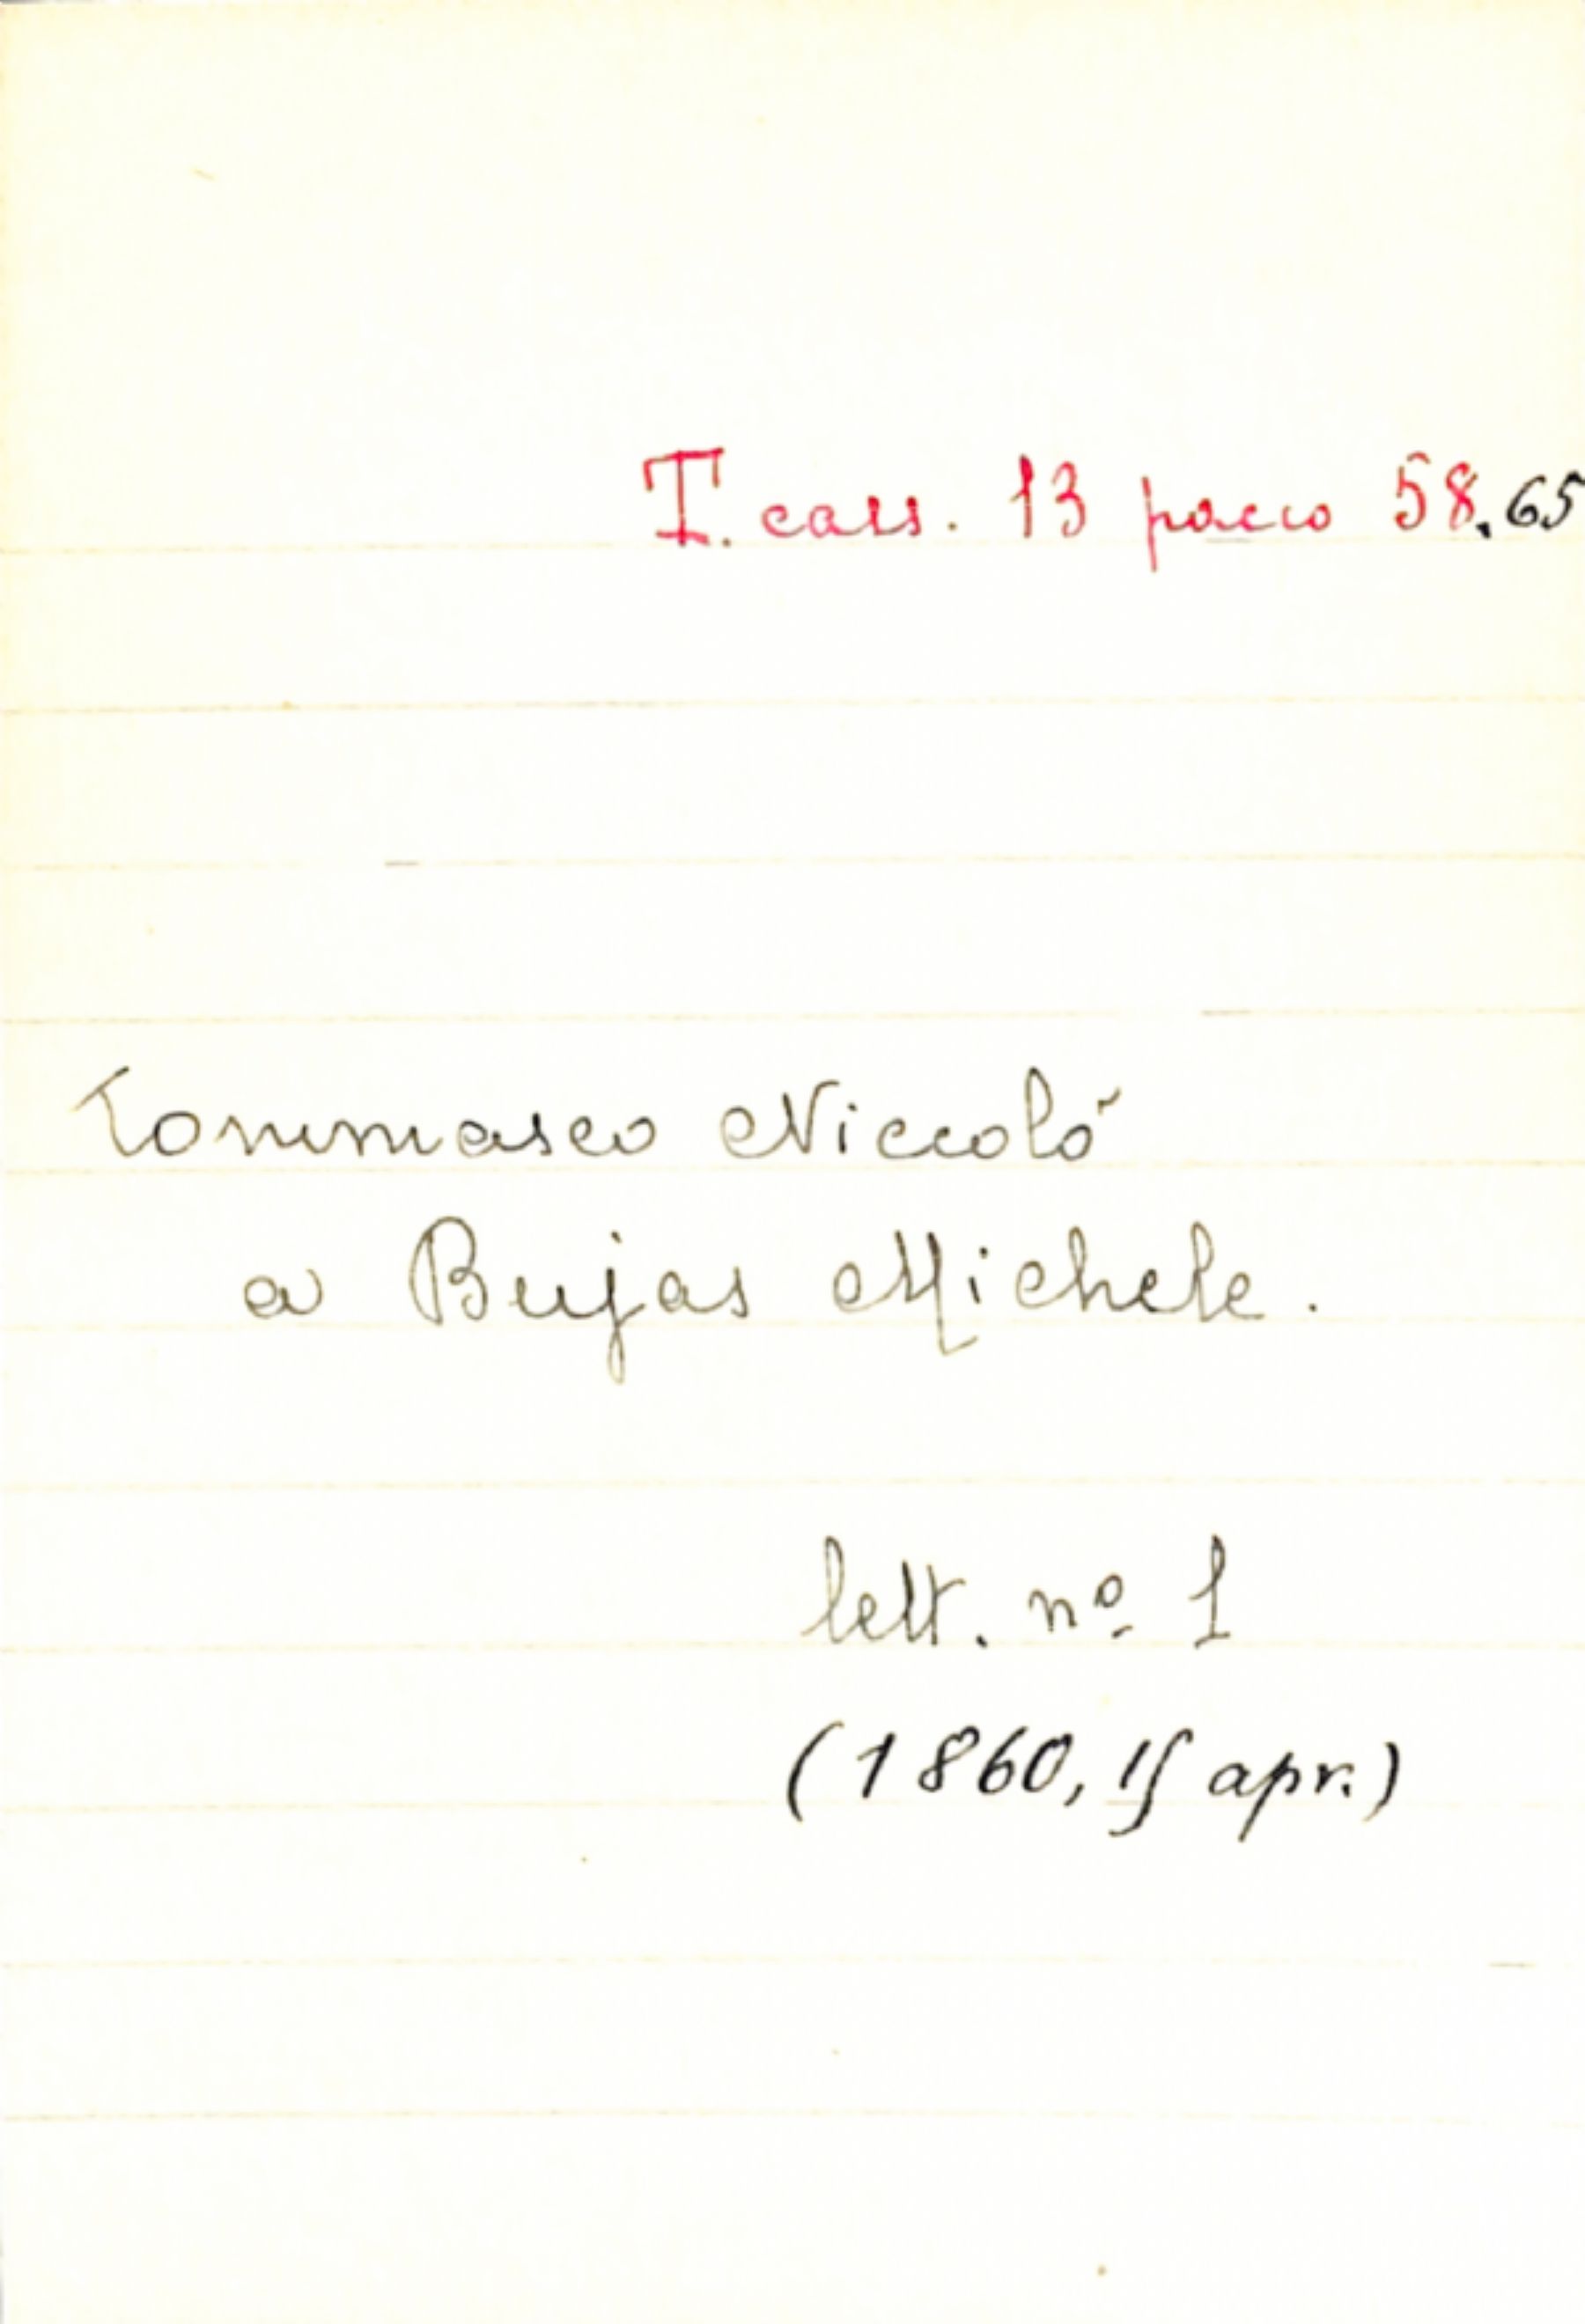 T. cass. 13 pacco 58.65
Tommaseo Niccolò
a Bujas Michele.
lett. nº 1
(1860, 15 apr.)